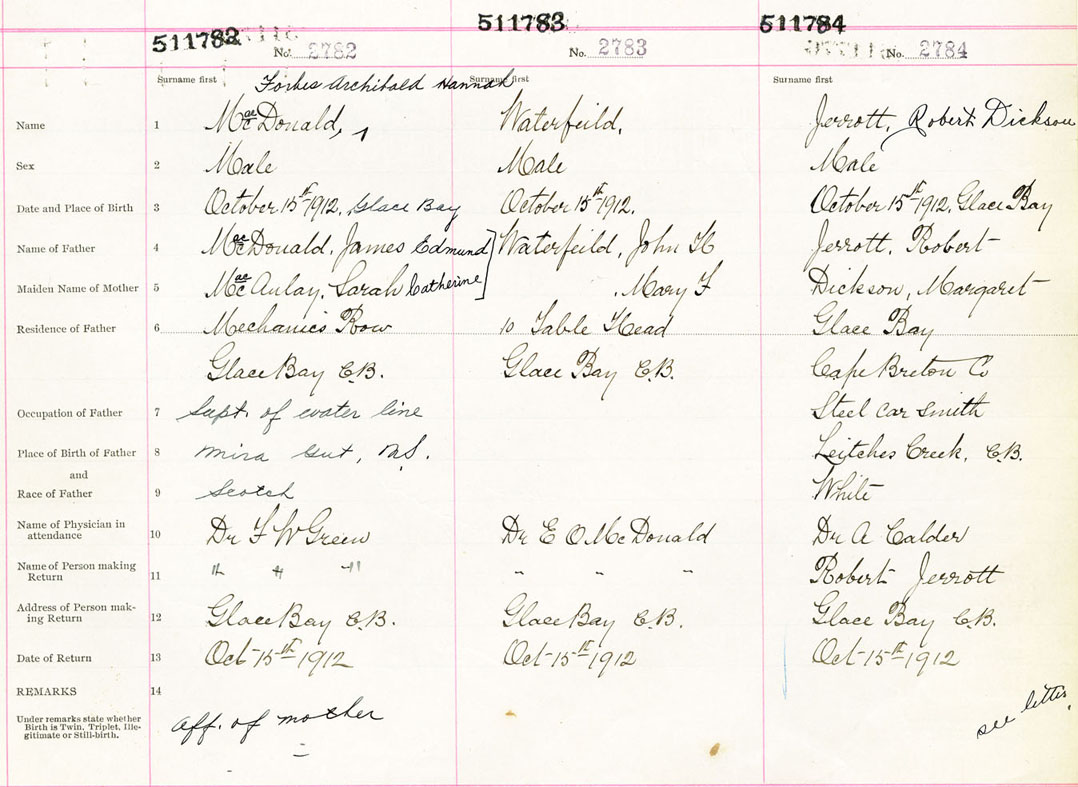 511782 511783 511784
No. 2782 No. 2783 No. 2784
Surname first Surname first Surname first
Forbes Archibald Hannah
Name 1 MacDonald, Waterfeild, Jerrott, Robert Dickson
Sex 2 Male Male Male
Date and Place of Birth 3 October 15th 1912, Glace Bay October 15th 1912, October 15th 1912, Glace Bay
Name of Father 4 MacDonald, James Edmund Waterfeild, John H Jerrott, Robert
Maiden Name of Mother 5 MacAulay, Sarah Catherine , Mary F Dickson, Margaret
Residence of Father 6 Mechanics Row 10 Table Head Glace Bay
Glace Bay C.B. Glace Bay C.B. Cape Breton Co
Occupation of Father 7 Supt. of water line Steel car smith
Place of Birth of Father 8 Mira Gut, N.S. Leitches Creek, C.B.
and
Race of Father 9 Scotch White
Name of Physician in
attendance 10 Dr F W Green Dr E O McDonald Dr A Calder
Name of Person making
Return 11 " " " " " " Robert Jerrott
Address of Person mak-
ing Return 12 Glace Bay C.B. Glace Bay C.B. Glace Bay C.B.
Date of Return 13 Oct 15th 1912 Oct 15th 1912 Oct 15th 1912
REMARKS 14
Under remarks state whether
Birth is Twin, Triplet, Ille-
gitimate or Still-birth.
aff. of mother
see letter,